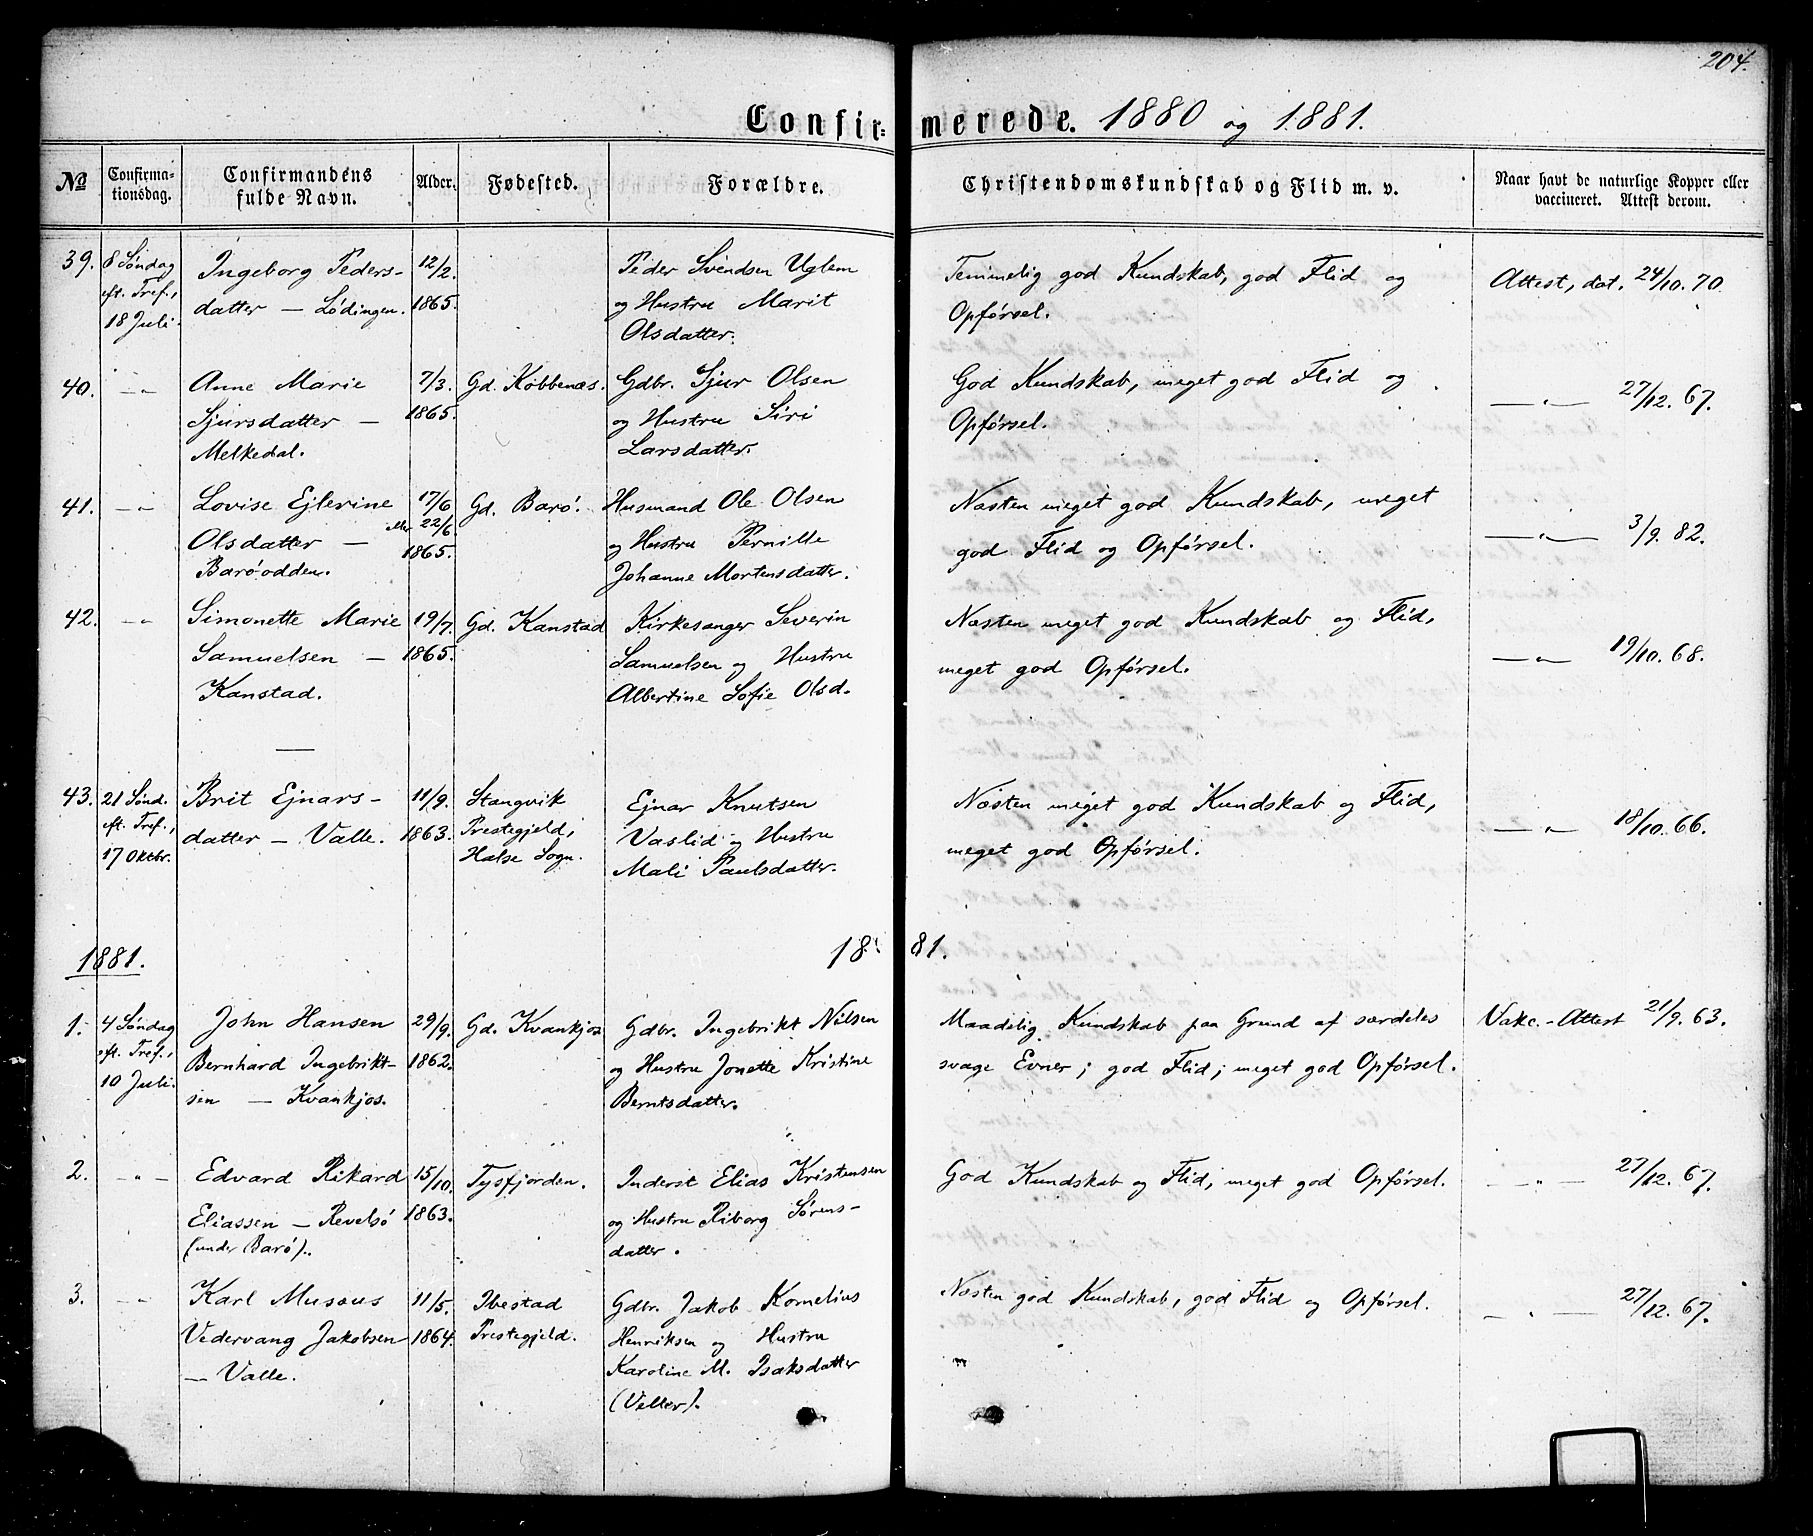 204.
Confir- merede. 1880 og 1881.
No Confirma- tionsdag. Confirmandens fulde Navn. Alder. Fødested. Forældre. Christendomskundskab og Flid m. v. Naar havt de naturlige Kopper eller vaccineret. Attest derom.
39. 8 Søndag Ingeborg Peders- 12/2. Peder Svendsen Uglem Temmelig god Kundskab, god Flid og Attest, dat. 24/10. 70.
eft. Tref., datter — Lødingen. 1865. og Hustru Marit Opførsel.
18 Juli. Olsdatter.
40. — " Anne Marie 7/3. Gd. Kobbenæs. Gdbr. Sjur Olsen God Kundskab, meget god Flid og — " — 27/12. 67.
Sjursdatter — 1865. og Hustru Siri Opførsel.
Melkedal. Larsdatter.
41. — " Lovise Ejlerine 17/6 Gd. Barø. Husmand Ole Olsen Næsten meget god Kundskab, meget — " — 3/9. 82.
Olsdatter — eller 22/6. og Hustru Pernille god Flid og Opførsel.
Barøodden. 1865. Johanne Mortensdatter.
42. — " Simonette Marie 19/7. Gd. Kanstad Kirkesanger Severin Næsten meget god Kundskab og Flid, — " — 19/10. 68.
Samuelsen — 1865. Samuelsen og Hustru meget god Opførsel.
Kanstad. Albertine Sofie Olsd.
43. 21 Sønd. Brit Ejnars- 11/9. Stangvik Ejnar Knutsen Næsten meget god Kundskab og Flid, — " — 18/10. 66.
eft. Tref., datter — Valle. 1863. Prestegjeld, Vaslid og Hustru meget god Opførsel.
17 Oktbr. Halse Sogn. Mali Paulsdatter.
1881. 18 81.
1. 4 Søndag John Hansen 29/9. Gd. Kvankjos Gdbr. Ingebrikt Nilsen Maadelig Kundskab paa Grund af særdeles Vakc.-Attest 21/9. 63.
eft. Tref., Bernhard Ingebrikt- 1862. og Hustru Jonette Kristine svage Evner; god Flid; meget god Opførsel.
10 Juli. sen — Kvankjos. Berntsdatter.
2. — " — Edvard Rikard 15/10. Tysfjorden. Inderst Elias Kristensen God Kundskab og Flid, meget god Opførsel. — " — 27/12. 67.
Eliassen — Revelsø 1863. og Hustru Riborg Sørens-
(under Barø). datter.
3. — " Karl Musæus 11/5. Ibestad Gdbr. Jakob Kornelius Næsten god Kundskab, god Flid og Opførsel. — " — 27/12. 67.
Vedervang Jakobsen 1864. Prestegjeld. Henriksen og Hustru
— Valle. Karoline M. Isaksdatter
(Valler).